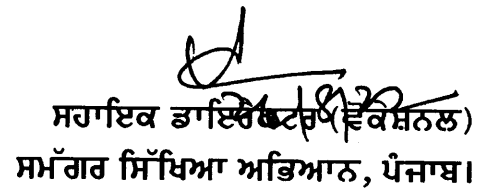 ਸਹਾਇਕ ਡਾਇਰੈਕਟਰ (ਵੋਕੇਸ਼ਨਲ)
ਸਮੱਗਰ ਸਿੱਖਿਆ ਅਭਿਆਨ, ਪੰਜਾਬ।